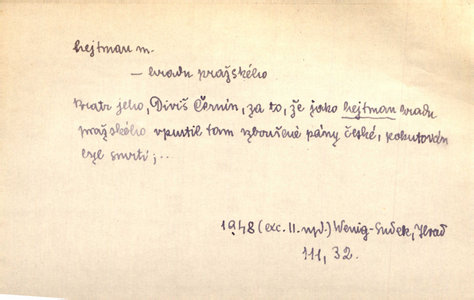 hejtman m.
— hradu pražského
Bratr jeho, Diviš Černín, za to, že jako hejtman hradu
pražského vpustil tam zbouřené pány české, pokutován
byl smrtí;..
1948 (exc. II. vyd.) Wenig-Sudek, Hrad
111, 32.